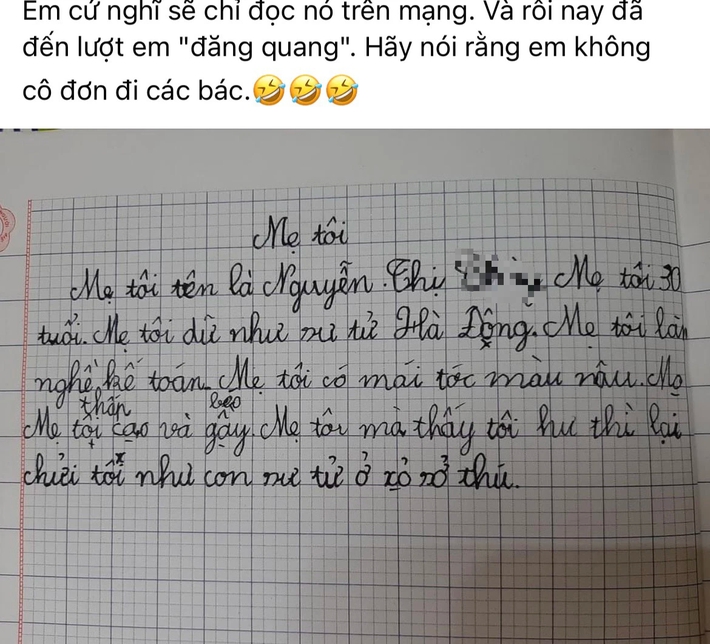 Em cứ nghĩ sẽ chỉ đọc nó trên mạng. Và rồi nay đã
đến lượt em "đăng quang". Hãy nói rằng em không
cô đơn đi các bác.🤣🤣🤣
Mẹ tôi
Mẹ tôi tên là Nguyễn Thị Mẹ tôi 30
tuổi. Mẹ tôi dữ như sư tử Hà Đông. Mẹ tôi làn
nghề kế toán. Mẹ tôi có mái tóc màu nâu. Mẹ
thấn beo
Mẹ tôi cao và gầy. Mẹ tôi mà thấy tôi hư thì lại
chửi tôi như con sư tử ở xỏ sở thú.